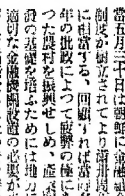 當五月三十日は朝鮮に金融
制度が樹立されてより滿拾周
に相當する、回顧すれば當時
年の批政によつて疲弊の極に
つた農村を振興せしめ、産業
の基礎を培ふためには地方
適切な金融機關設置の必要